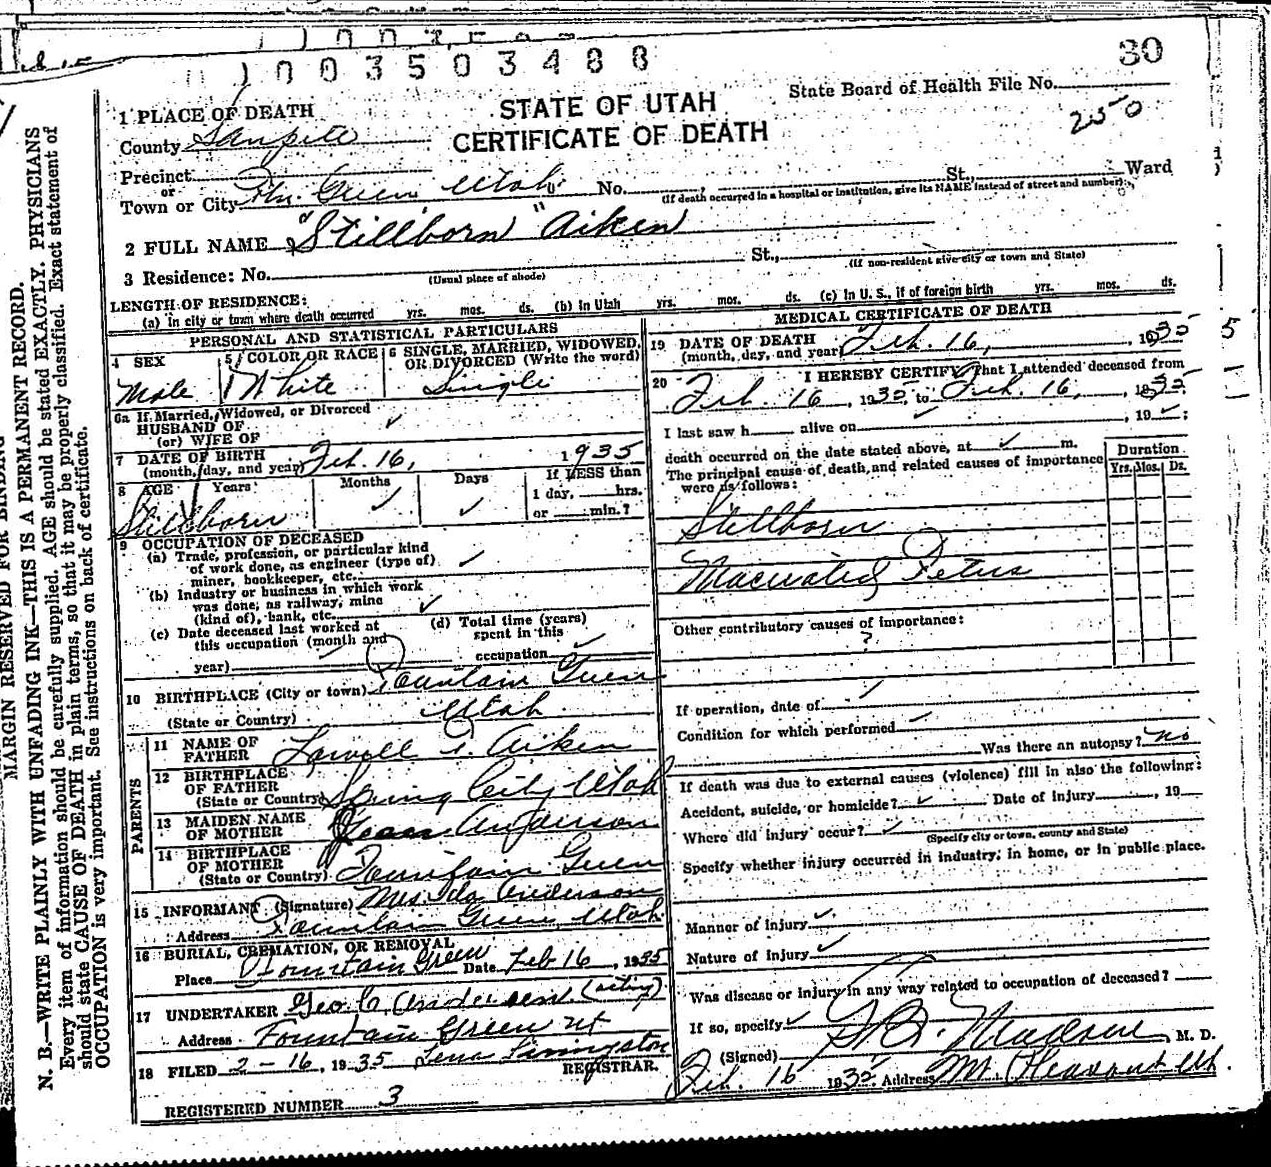 1003503488
30
STATE OF UTAH
CERTIFICATE OF DEATH
State Board of Health File No.
250
1 PLACE OF DEATH
County Sanpete
Precinct
or
Town or City Ftn. Green, Utah No. St., Ward
(If death occurred in a hospital or institution, give its NAME instead of street and number)
2 FULL NAME "Stillborn" Aiken
3 Residence: No. St.,
(Usual place of abode) (If non-resident give city or town and State)
LENGTH OF RESIDENCE:
(a) In city or town where death occurred yrs. mos. ds. (b) In Utah yrs. mos. ds. (c) In U. S., if of foreign birth yrs. mos. ds.
PERSONAL AND STATISTICAL PARTICULARS
4 SEX 5 COLOR OR RACE 6 SINGLE, MARRIED, WIDOWED, OR DIVORCED (Write the word)
Male White Single
6a If Married, Widowed, or Divorced
HUSBAND OF
(or) WIFE OF
7 DATE OF BIRTH
(month, day, and year) Feb. 16, 1935
8 AGE Years Months Days If LESS than
1 day, hrs.
or min.?
Stillborn
9 OCCUPATION OF DECEASED
(a) Trade, profession, or particular kind
of work done, as engineer (type of)
miner, bookkeeper, etc.
(b) Industry or business in which work
was done; as railway, mine
(kind of), bank, etc.
(c) Date deceased last worked at
this occupation (month and
year)
(d) Total time (years)
spent in this
occupation
10 BIRTHPLACE (City or town) Fountain Green
(State or Country) Utah
PARENTS
11 NAME OF
FATHER Lowell P. Aiken
12 BIRTHPLACE
OF FATHER
(State or Country) Spring City Utah
13 MAIDEN NAME
OF MOTHER Anderson
14 BIRTHPLACE
OF MOTHER
(State or Country) Fountain Green
15 INFORMANT (Signature) Mrs. Ida Anderson
Address Fountain Green, Utah
16 BURIAL, CREMATION, OR REMOVAL
Place Fountain Green Date Feb 16, 1935
17 UNDERTAKER Geo. C. Andersen (acting)
Address Fountain Green Ut
18 FILED 2-16, 1935 Lena Livingston
REGISTRAR.
REGISTERED NUMBER 3
MEDICAL CERTIFICATE OF DEATH
19 DATE OF DEATH
(month, day, and year) Feb. 16, 1935
20 I HEREBY CERTIFY That I attended deceased from
Feb. 16, 1935, to Feb. 16, 1935
I last saw h alive on , 19 ;
death occurred on the date stated above, at m.
The principal cause of death and related causes of importance
were as follows:
Duration
Yrs. Mos. Ds.
Stillborn
Macerated Fetus
Other contributory causes of importance:
?
If operation, date of
Condition for which performed
Was there an autopsy? No
If death was due to external causes (violence) fill in also the following:
Accident, suicide, or homicide? Date of injury , 19
Where did injury occur?
(Specify city or town, county and State)
Specify whether injury occurred in industry, in home, or in public place.
Manner of injury
Nature of injury
Was disease or injury in any way related to occupation of deceased?
If so, specify
(Signed) Madsen, M. D.
Feb. 16 1935 Address Mt. Pleasant Ut.
MARGIN RESERVED FOR BINDING
N. B.—WRITE PLAINLY WITH UNFADING INK—THIS IS A PERMANENT RECORD.
Every item of information should be carefully supplied. AGE should be stated EXACTLY. PHYSICIANS
should state CAUSE OF DEATH in plain terms, so that it may be properly classified. Exact statement of
OCCUPATION is very important. See instructions on back of certificate.
5